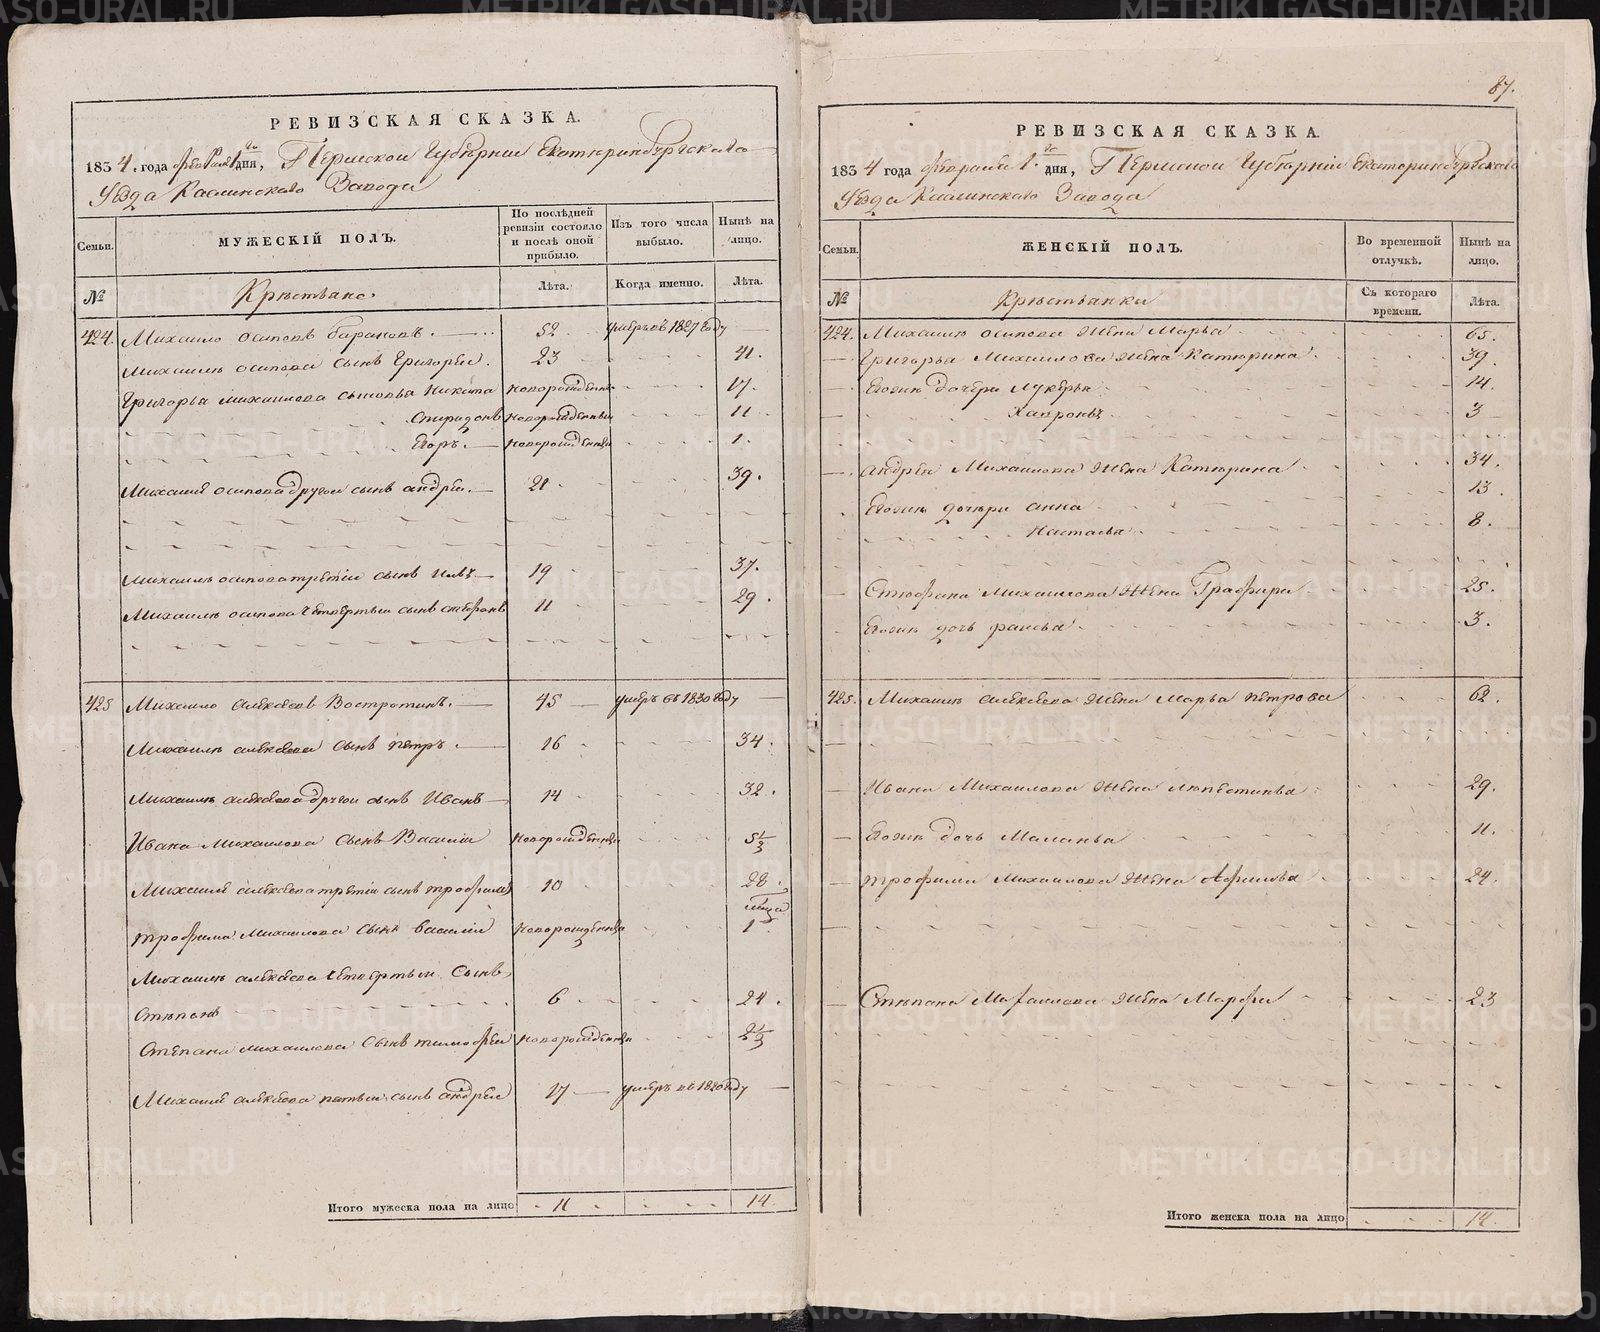 РЕВИЗСКАЯ СКАЗКА.
1834. года февраля 1 дня, Пермской Губернии Екатеринбургскаго
Уезда Каслинскаго Завода
Семьи.
МУЖЕСКІЙ ПОЛЪ.
По послѣдней ревизіи состояло и послѣ оной прибыло.
Изъ того числа выбыло.
Нынѣ на лицо.
№
Крестьяне.
Лѣта.
Когда именно.
Лѣта.
424. Михаило осиповъ 52 умеръ въ 1827 году
Михаилы осипова сынъ Григореи. 23 41.
Григорья михаилова сыновья Никита новорожденъ 17.
Спиридонъ новорожденныи 11
Егоръ. новорожденныи 1.
Михаилы осипова другои сынъ андреи. 21 39.
Михаилы осипова третіи сынъ 19 37.
Михаилы осипова четвертыи сынъ стефанъ 11 29.
425 Михаило алексеевъ Востротинъ. 45 умеръ въ 1830 году
Михаилы алексеева сынъ петръ. 16 34.
Михаилы алексеева другои сынъ Иванъ 14 32.
Ивана Михаилова сынъ Василіи новорожденныи 5 1/2
Михаилы алексеева третіи сынъ трофимъ 10 28.
месяца
трофима Михаилова сынъ василіи новорожденныи 1
Михаилы алексеева четвертыи сынъ
Степанъ 6 24.
Степана михаилова сынъ тимофеи новорожденныи 2 1/2
Михаилы алексеева пятыи сынъ андреи 17 умеръ въ 1820 году
Итого мужеска пола на лицо 11 14.
87.
РЕВИЗСКАЯ СКАЗКА.
1834 года февраля 1. дня, Пермской Губерніи Екатеринбургскаго
Уезда Каслинскаго Завода
Семьи.
ЖЕНСКІЙ ПОЛЪ.
Во временной отлучкѣ.
Нынѣ на лицо.
№
Крестьянки
Съ котораго времени.
Лѣта.
424. Михаилы осипова жена Марья 65.
Григорья Михаилова жена Катерина 39.
Евоги дочери лукерья 14.
Хавронья 3
андрея Михаилова жена Катерина 34.
Евоги дочери анна 13.
Настасья 8.
Стефана Михаилова жена Графира 25.
Евоги дочь раиса 3.
425. Михаилы алексеева жена Марья петрова 62.
Ивана Михаилова жена 29.
Евоги дочь Маланья 11.
трофима Михаилова жена 24.
Степана жена Марфа 23
Итого женска пола на лицо 14
METRIKI.GASO-URAL.RU